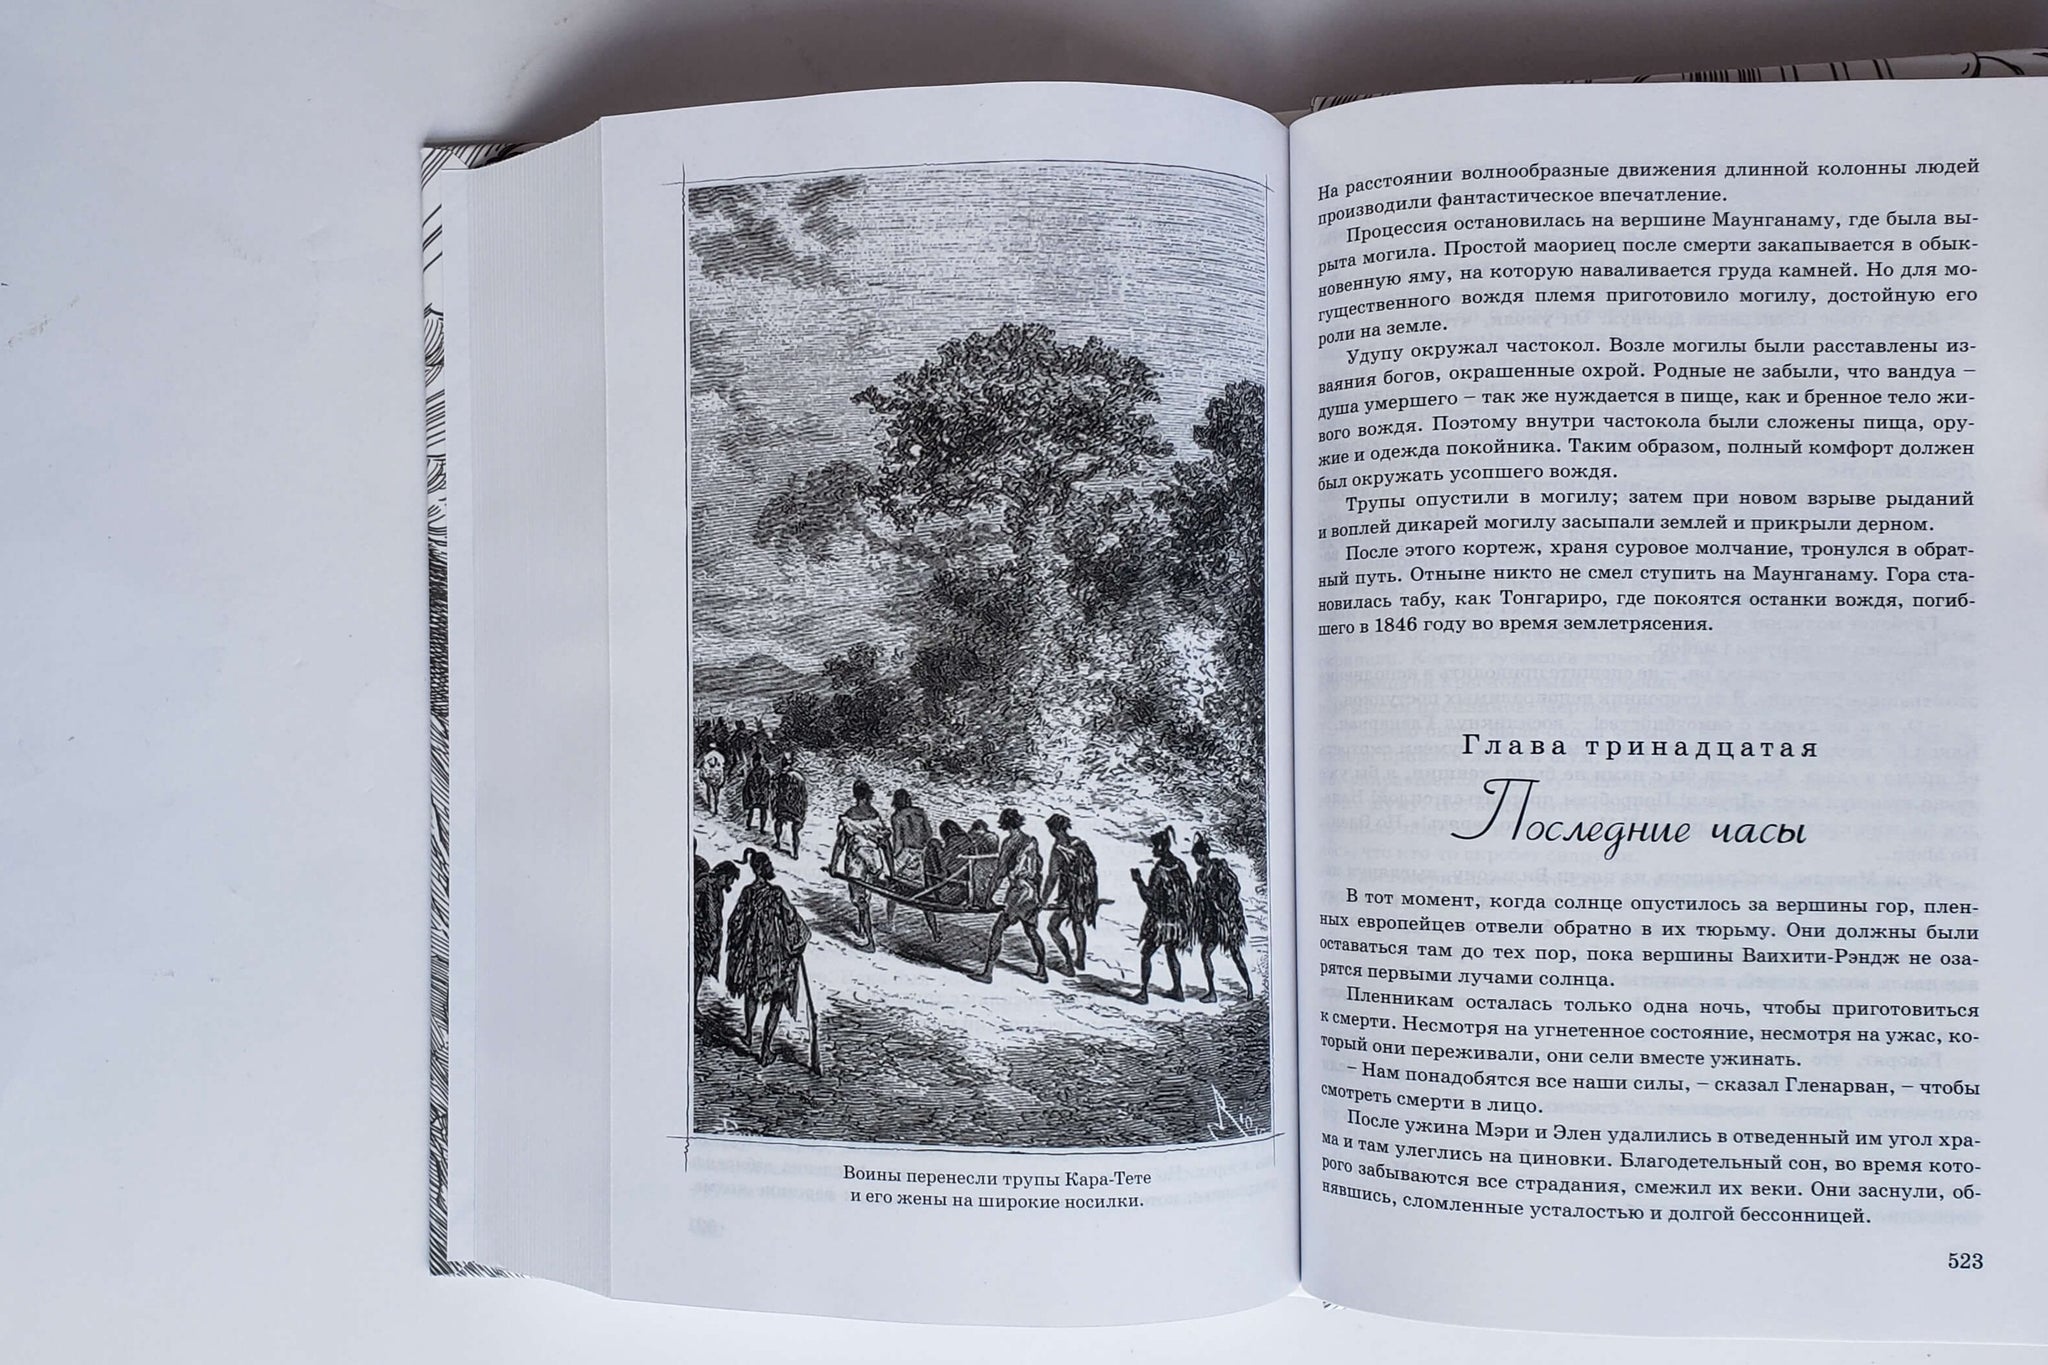 Воины перенесли трупы Кара-Тете
и его жены на широкие носилки.
На расстоянии волнообразные движения длинной колонны людей
производили фантастическое впечатление.
Процессия остановилась на вершине Маунганаму, где была вы-
рыта могила. Простой маориец после смерти закапывается в обык-
новенную яму, на которую наваливается груда камней. Но для мо-
гущественного вождя племя приготовило могилу, достойную его
роли на земле.
Удупу окружал частокол. Возле могилы были расставлены из-
ваяния богов, окрашенные охрой. Родные не забыли, что вандуа –
душа умершего – так же нуждается в пище, как и бренное тело жи-
вого вождя. Поэтому внутри частокола были сложены пища, ору-
жие и одежда покойника. Таким образом, полный комфорт должен
был окружать усопшего вождя.
Трупы опустили в могилу; затем при новом взрыве рыданий
и воплей дикарей могилу засыпали землей и прикрыли дерном.
После этого кортеж, храня суровое молчание, тронулся в обрат-
ный путь. Отныне никто не смел ступить на Маунганаму. Гора ста-
новилась табу, как Тонгариро, где покоятся останки вождя, погиб-
шего в 1846 году во время землетрясения.
Глава тринадцатая
Последние часы
В тот момент, когда солнце опустилось за вершины гор, плен-
ных европейцев отвели обратно в их тюрьму. Они должны были
оставаться там до тех пор, пока вершины Ваихити-Рэндж не оза-
рятся первыми лучами солнца.
Пленникам осталась только одна ночь, чтобы приготовиться
к смерти. Несмотря на угнетенное состояние, несмотря на ужас, ко-
торый они переживали, они сели вместе ужинать.
– Нам понадобятся все наши силы, – сказал Гленарван, – чтобы
смотреть смерти в лицо.
После ужина Мэри и Элен удалились в отведенный им угол хра-
ма и там улеглись на циновки. Благодетельный сон, во время кото-
рого забываются все страдания, смежил их веки. Они заснули, об-
нявшись, сломленные усталостью и долгой бессонницей.
523